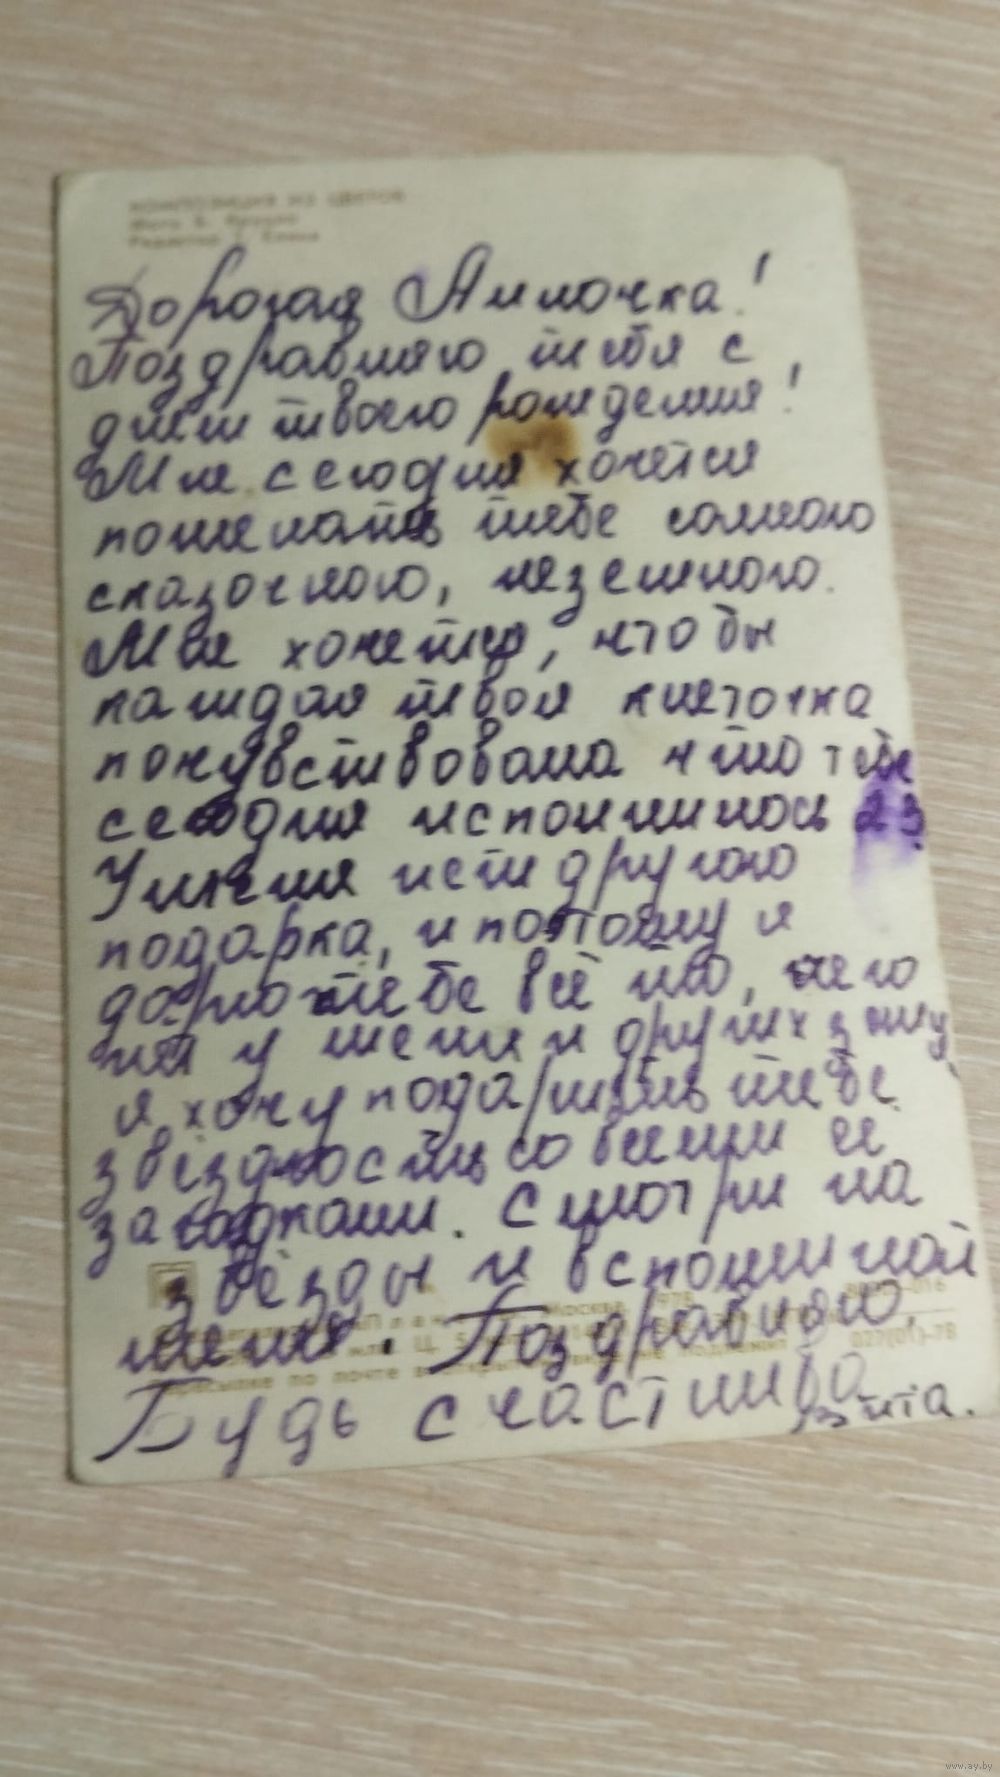 КОМПОЗИЦИЯ ИЗ ЦВЕТОВ
Фото Б.
Редактор
Дорогая Лилочка!
Поздравляю тебя с
днём твоего рождения!
Мне сегодня хочется
пожелать тебе самого
сказочного, неземного.
Мне хочется, чтобы
каждая твоя клеточка
почувствовала что тебе
сегодня исполнилось 23
У меня нет другого
подарка, и потому я
дарю тебе всё то, чего
нет у меня и других
я хочу подарить тебе
звёздность со всеми её
загадками. Смотри на
звёзды и вспоминай
меня. Поздравляю,
Будь счастлива
Зита.
Москва 1978
027(01)-78
www.ay.by